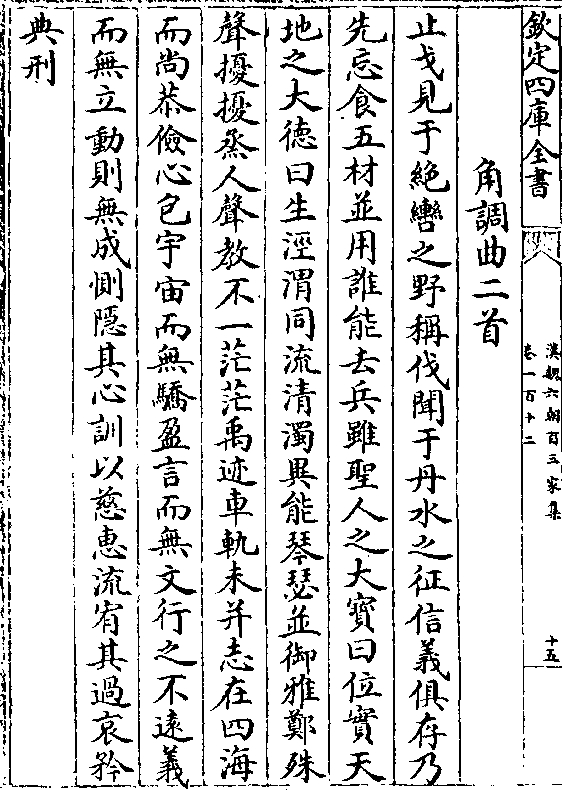 欽定四庫全書
漢魏六朝百三家集
卷一百十二
十五
角調曲二首
止戈見于絶轡之野稱伐聞于丹水之征信義俱存乃
先忘食五材並用誰能去兵雖聖人之大寶曰位實天
地之大德曰生涇渭同流清濁異能琴瑟並御雅鄭殊
聲擾擾烝人聲教不一茫茫禹迹車軌未并志在四海
而尚恭儉心包宇宙而無驕盈言而無文行之不遠義
而無立動則無成惻隱其心訓以慈惠流宥其過哀矜
典刑